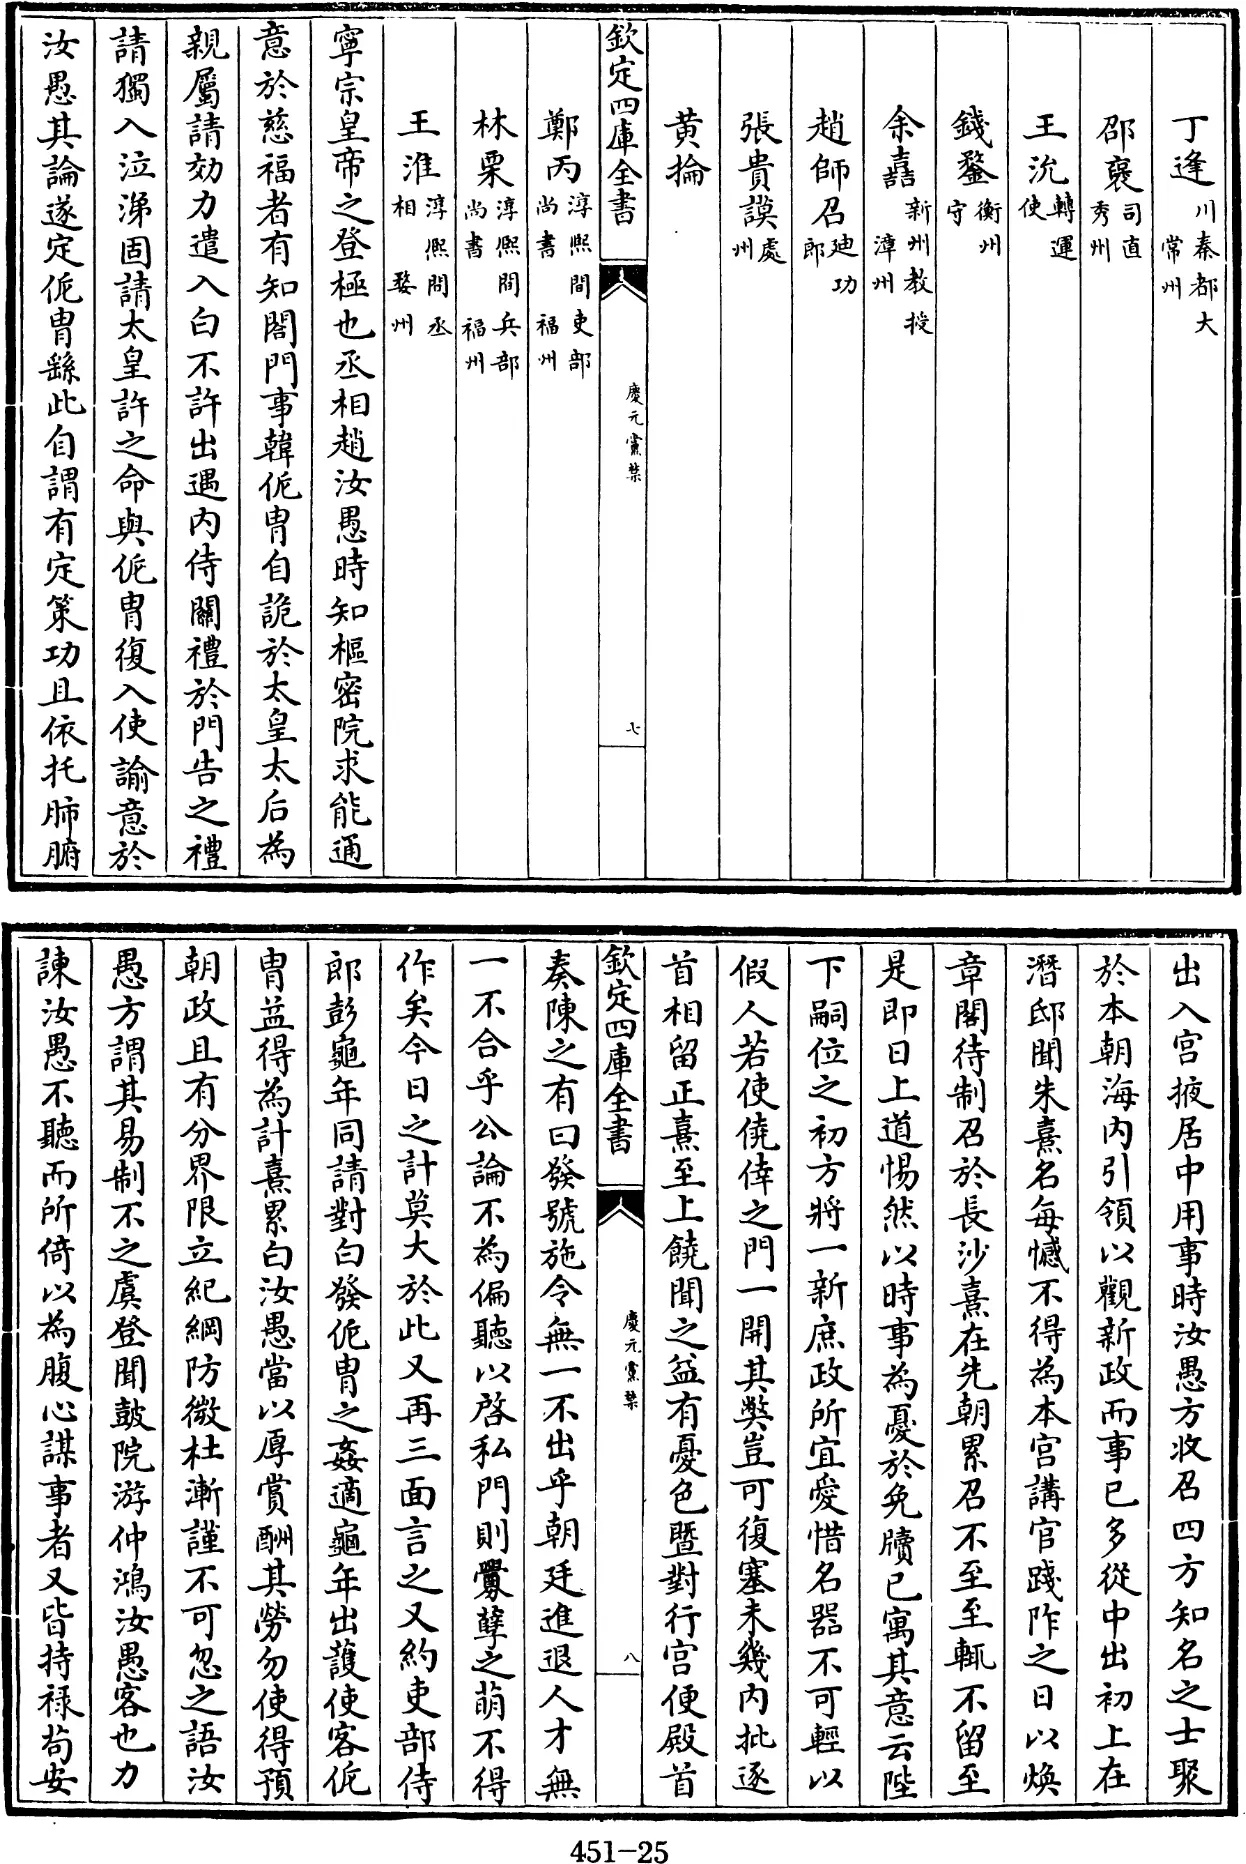 丁逢川秦都大常州
邵襃司直秀州
王沇轉運使
錢鍪衡州守
余嚞新州教授漳州
趙師召廸功郎
張貴謨處州
黃掄
欽定四庫全書 慶元黨禁 七
鄭丙淳熙間吏部尚書福州
林栗淳熙間兵部尚書福州
王淮淳熙間丞相婺州
寧宗皇帝之登極也丞相趙汝愚時知樞密院求能通
意於慈福者有知閤門事韓侂冑自詭於太皇太后為
親屬請効力遣入白不許出遇内侍關禮於門告之禮
請獨入泣涕固請太皇許之命與侂冑復入使諭意於
汝愚其論遂定侂冑繇此自謂有定策功且依托肺腑
出入宫掖居中用事時汝愚方收召四方知名之士聚
於本朝海内引領以觀新政而事已多從中出初上在
潛邸聞朱熹名每憾不得為本宫講官踐阼之日以煥
章閣待制召於長沙熹在先朝累召不至至輒不留至
是即日上道惕然以時事為憂於免牘已寓其意云陛
下嗣位之初方將一新庶政所宜愛惜名器不可輕以
假人若使僥倖之門一開其弊豈可復塞未幾内批逐
首相留正熹至上饒聞之益有憂色暨對行宫便殿首
欽定四庫全書 慶元黨禁 八
奏陳之有曰發號施令無一不出乎朝廷進退人才無
一不合乎公論不為偏聽以啓私門則釁孽之萌不得
作矣今日之計莫大於此又再三面言之又約吏部侍
郎彭龜年同請對白發侂冑之姦適龜年出護使客侂
冑益得為計熹累白汝愚當以厚賞酬其勞勿使得預
朝政且有分界限立紀綱防微杜漸謹不可忽之語汝
愚方謂其易制不之虞登聞鼓院游仲鴻汝愚客也力
諫汝愚不聽而所倚以為腹心謀事者又皆持禄苟安
451-25